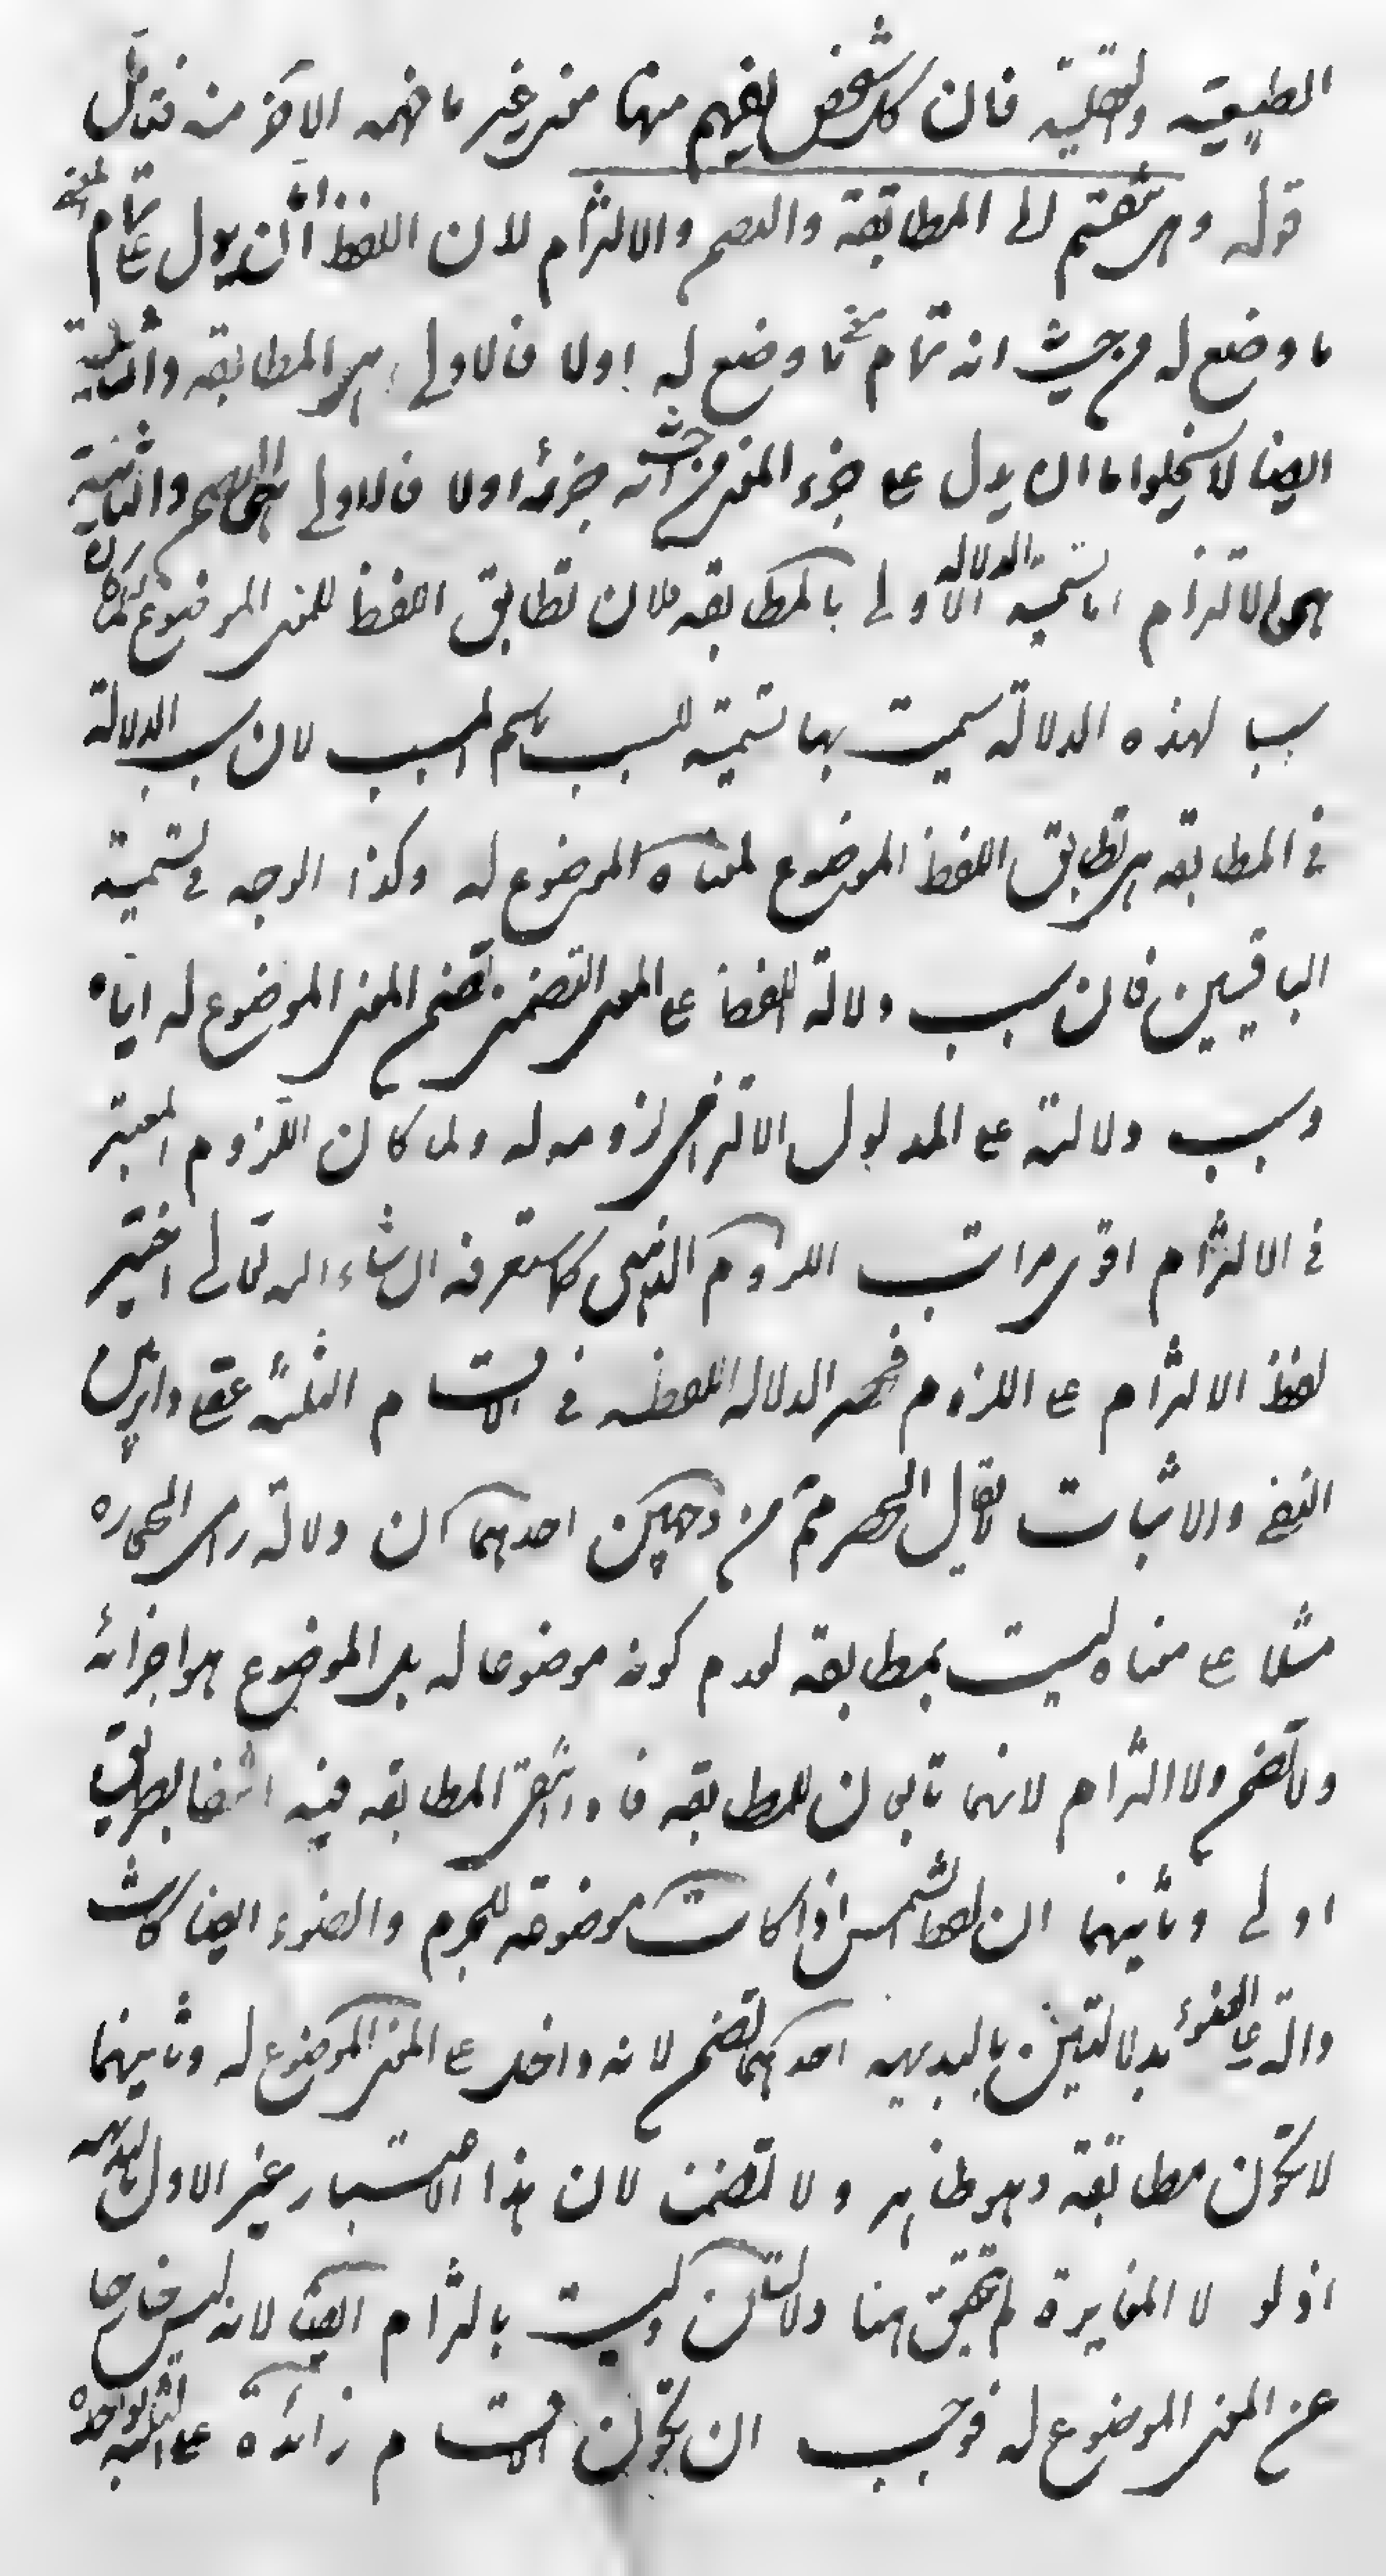 الطبيعية والعقلية فان كل شخص يفهم منها معنى غير ما فهمه الآخر منه فتأمل
قوله وهى تنقسم الى المطابقة والتضمن والالتزام لان اللفظ اما ان يدل على تمام المعنى
ما وضع له من حيث انه تمام ما وضع له اولا فالاولى هى المطابقه والثانية
ايضا لا يخلو اما ان يدل على جزء المعنى من حيث انه جزئه اولا فالاولى هى التضمن والثانية
هى الالتزام اما تسمية الدلاله الاولى بالمطابقه فلان تطابق اللفظ للمعنى الموضوع له
سبب لهذه الدلالة سميت بها تسمية للسبب باسم المسبب لان سبب الدلالة
فى المطابقه هى تطابق اللفظ الموضوع لمعناه الموضوع له وكذا الوجه فى تسمية
الباقيين فان سبب دلالة اللفظ على المعنى التضمنى تضمن المعنى الموضوع له اياه
وسبب دلالته على المدلول الالتزامى لزومه له ولما كان اللزوم المعتبر
فى الالتزام اقوى مراتب اللزوم الذهنى كما ستعرفه ان شاء الله تعالى اختير
لفظ الالتزام على اللزوم فحصر الدلاله اللفظيه فى الاقسام الثلثة عقلى دائر بين
النفى والاثبات لا يقال الحصر ثم من وجهين احدهما ان دلالة رامى الحجاره
مثلا على معناه ليست بمطابقه لعدم كونه موضوعا له بل الموضوع هو اجزائه
ولا تضمن ولا التزام لانهما تابعان للمطابقه فاذا انتفى المطابقه فيه انتفيا بطريق
اولى وثانيهما ان لفظ الشمس اذا كانت موضوعة للجرم والضوء ايضا كانت
دالة على الضوء بدلالتين بالبديهيه احدهما تضمن لانه داخل على المعنى الموضوع له وثانيهما
لا تكون مطابقة وهو ظاهر ولا تضمن لان هذا الاعتبار غير الاول بالبديهه
اذ لو لا المغايرة لم تتحقق هنا دلالتان وليست بالتزام ايضا لانه ليس خارجا
عن المعنى الموضوع له فوجب ان تكون الاقسام زائدة على الثلثة لواحدة